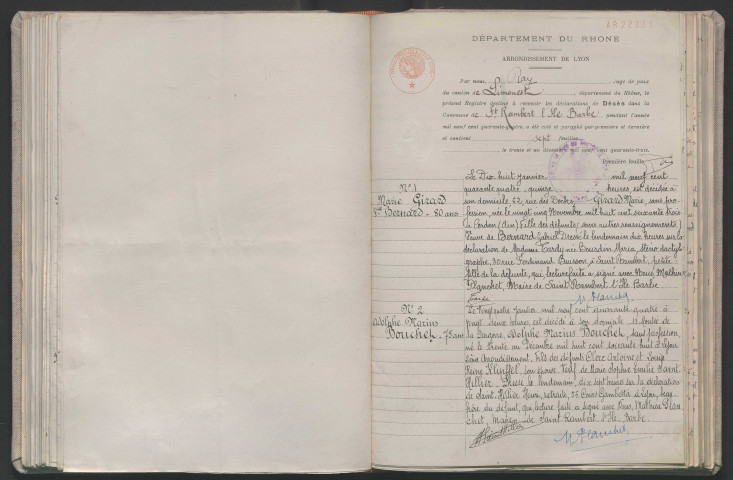 DÉPARTEMENT DU RHONE
ARRONDISSEMENT DE LYON
Par nous, Ray, Juge de paix
du canton de Limonest, département du Rhône, le
présent Registre destiné à recevoir les déclarations de Décès dans la
Commune de St Rambert l'Ile Barbe, pendant l'année
mil neuf cent quarante-quatre, a été coté et paraphé par première et dernière
et contient sept feuilles
le trente et un décembre mil neuf cent quarante-trois.
Première feuille
N° 1
Marie Girard
Vve Bernard - 80 ans
Le Dix huit janvier mil neuf cent
quarante quatre, quinze heures, est décédée à
son domicile 52, rue des Docks, Girard Marie, sans pro
fession, née le vingt cinq Novembre mil huit cent soixante trois
à Cordon (Ain) fille des défunts (sans autres renseignements)
Veuve de Bernard Gabriel Dressé le lendemain dix heures sur la
déclaration de Madame Tardy née Bourdin Maria, sténo dactylo
graphe, 30 rue Ferdinand Buisson à Saint Rambert, petite
fille de la défunte, qui, lecture faite a signé avec Nous, Mathieu
Planchet, Maire de Saint Rambert l'Ile Barbe
N° 2
Adolphe Marius
Bouchet - 75 ans
Le vingt quatre Janvier mil neuf cent quarante quatre à
vingt deux heures, est décédé à son domicile 11 Route de
la Adolphe Marius Bouchet, sans profession,
né le trente au Décembre mil huit cent soixante huit à Lyon
Arrondissement, fils des défunts Claude Antoine et Louise
Reine son épouse. Veuf de Marie Sophie Emilie Saint
Hillier. Dressé le lendemain, dix sept heures sur la déclaration
de Saint Hillier Henri, retraité, 26 Cours Gambetta à Lyon, beau
frère du défunt, qui lecture faite a signé avec Nous, Mathieu Plan
chet, Maire de Saint Rambert l'Ile Barbe.
M Planchet